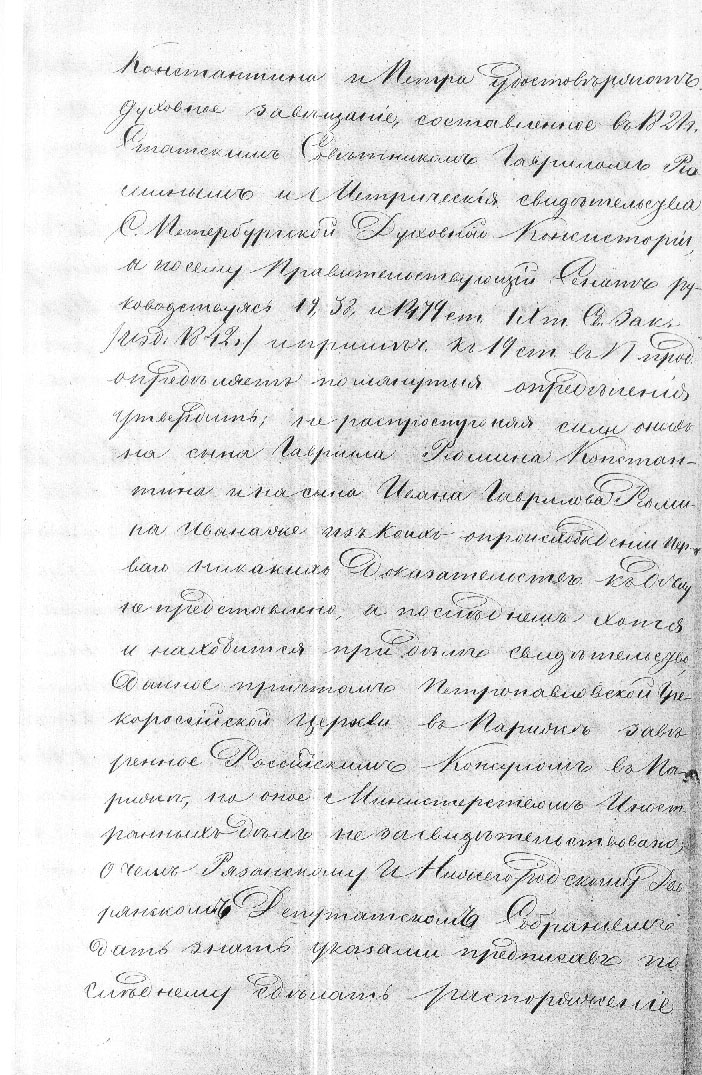 Константина и Петра удостовѣряютъ
духовное завѣщаніе, составленное въ 182 г.
Статскимъ Совѣтникомъ Гавриломъ Рю
минымъ и Метрическія свидѣтельства
С Петербургской Духовной Консисторіи,
а посему Правительствующій Сенатъ ру-
ководствуясь 19, 58, и 1479 ст. IX т. Св. Зак.
/изд. 1842./ и примѣч. къ 19 ст. въ II прод.
опредѣляетъ помянутыя опредѣленія
утвердить, не распространяя силы оныхъ
на сына Гаврила Рюмина Констан-
тина и на сына Ивана Гаврилова Рюми-
на Ивана же изъ коихъ о происхожденіи пер-
ваго никакихъ Доказательствъ къ дѣлу
не представлено, а о послѣднемъ хотя
и находится при дѣлѣ свидѣтельство,
Данное причтомъ Петропавловской Гре-
короссійской церкви въ Парижѣ завѣ
ренное Россійскимъ Консуломъ въ Па-
рижѣ, но оное Министерствомъ Иност
ранныхъ дѣлъ не засвидѣтельствовано;
о чемъ Рязанскому и Нижегородскому Дво
рянскомъ Депутатскомъ Собраніемъ
дать знать указами предписавъ по
слѣднему сдѣлать распоряженіе